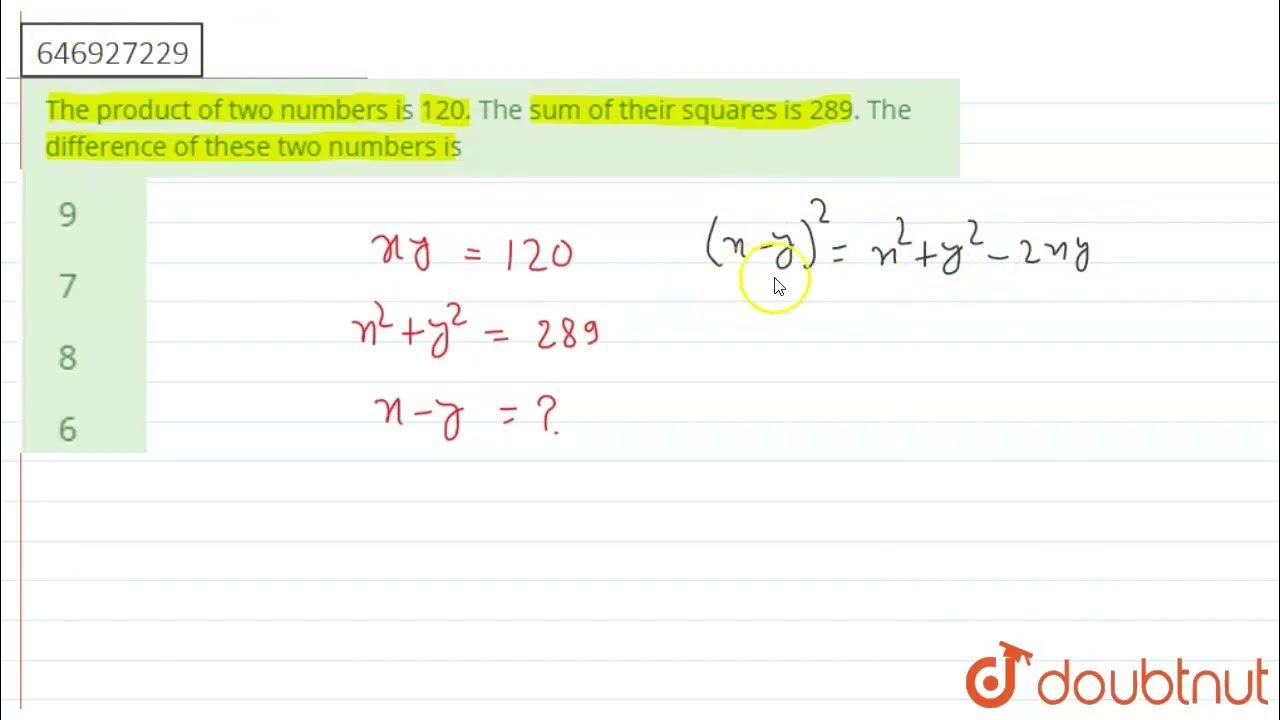 646927229
The product of two numbers is 120. The sum of their squares is 289. The
difference of these two numbers is
9
7
8
6
xy = 120
x² + y² = 289
x - y = ?
(x - y)² = x² + y² - 2xy
doubtnut